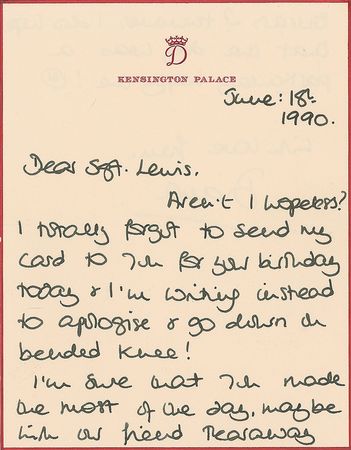 D
KENSINGTON PALACE
June: 18th
1990.
Dear Sgt. Lewis.
Aren't I hopeless?
I totally forgot to send my
card to you for your birthday
today & I'm writing instead
to apologise & go down on
bended knee!
I'm sure that you made
the most of the day, maybe
with our friend Tearaway